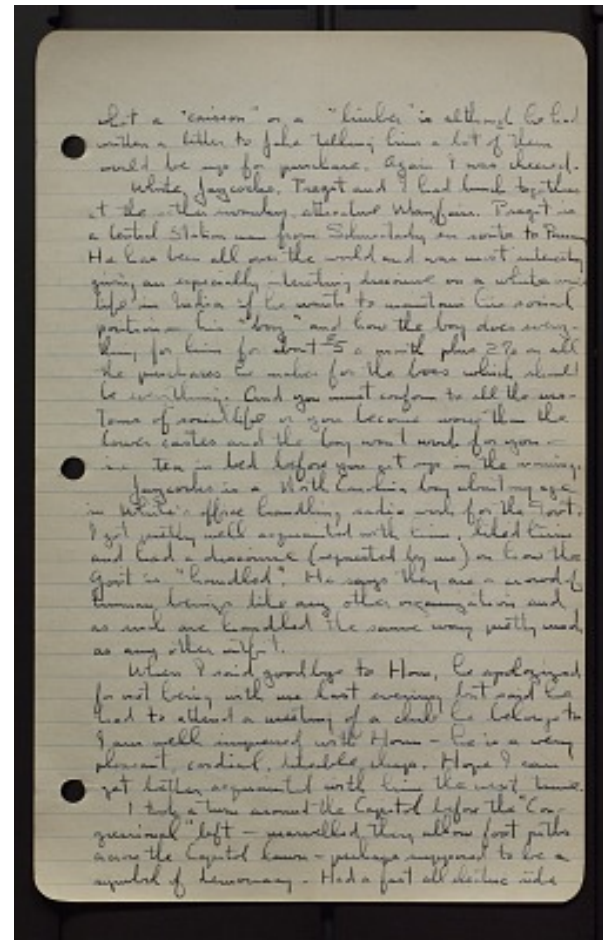 what a "caisson" or a "limber" is although he had
written a letter to Jake telling him a lot of them
would be up for purchase. Again I was cheered.
White, Jaycocks, Trezet and I had lunch together
at the other attractive Mayflower. Trezet is
a Central Station man from Schenectady en route to
He has been all over the world and was most interesting
giving an especially interesting discourse on a white man's
life in India if he wants to maintain his social
position - his "boy" and how the boy does every-
thing for him for about $5 a month plus 2% on all
the purchases he makes for the boss which should
be everything. And you must conform to all the cus-
toms of social life or you become worse than the
lower castes and the boy won't work for you -
i.e. tea in bed before you get up in the morning.
Jaycocks is a North Carolina boy about my age
in White's office handling radio work for the Govt.
I got pretty well acquainted with him, liked him
and had a discourse (requested by me) on how the
Gov't is "handled". He says they are a crowd of
human beings like any other organization and
as such are handled the same way pretty much
as any other
When I said goodbye to Horn, he apologized
for not being with me last evening but said he
had to attend a meeting of a club he belongs to
I am well impressed with Horn - he is a very
pleasant, cordial, likeable chap. Hope I can
get better acquainted with him the next time.
I took a turn around the Capitol before the "Con-
gressional" left - marvelled they allow foot paths
across the Capitol lawn - perhaps supposed to be a
symbol of democracy. Had a fast all electric ride